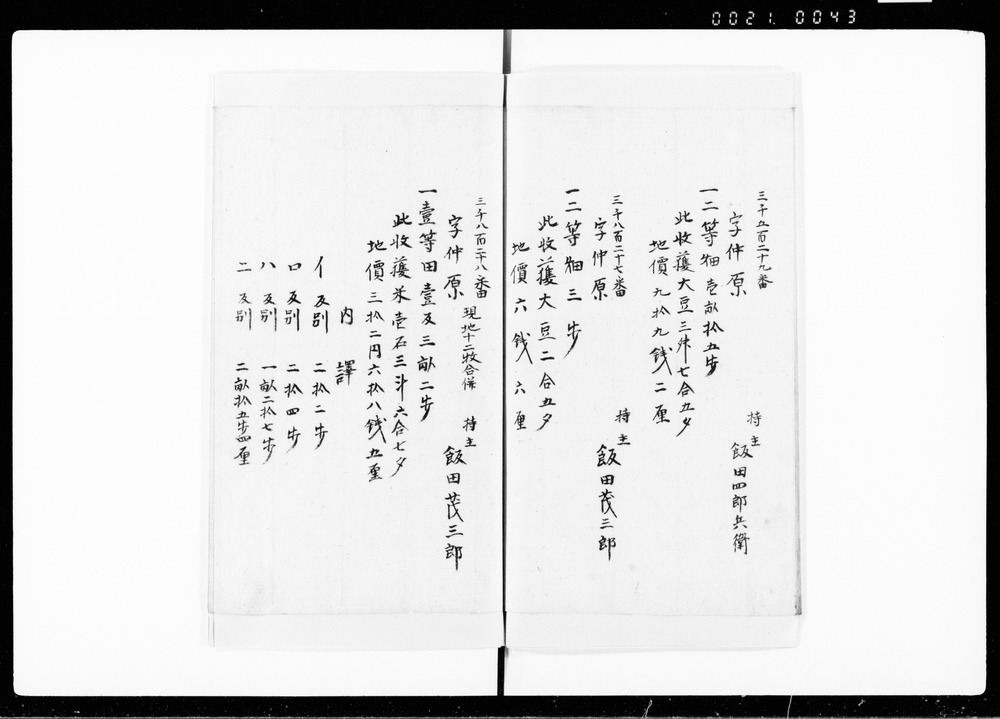 0021. 0043
三千五百二十九番
字仲原
一二等畑壱畝拾五歩
此收獲大豆三舛七合五夕
地價九拾九銭二厘
持主
飯田四郎兵衛
三千八百二十七番
字仲原
一二等畑三歩
此收獲大豆二合五夕
地價六銭六厘
持主
飯田茂三郎
三千八百二十八番
字仲原
現地十二牧合併
一壹等田壹反三畝二歩
此收獲米壱石三斗六合七夕
地價三拾二円六拾八銭五厘
持主
飯田茂三郎
内譯
イ 反別 二拾二歩
ロ 反別 二拾四歩
ハ 反別 一畝二拾七歩
ニ 反別 二畝拾五歩四厘